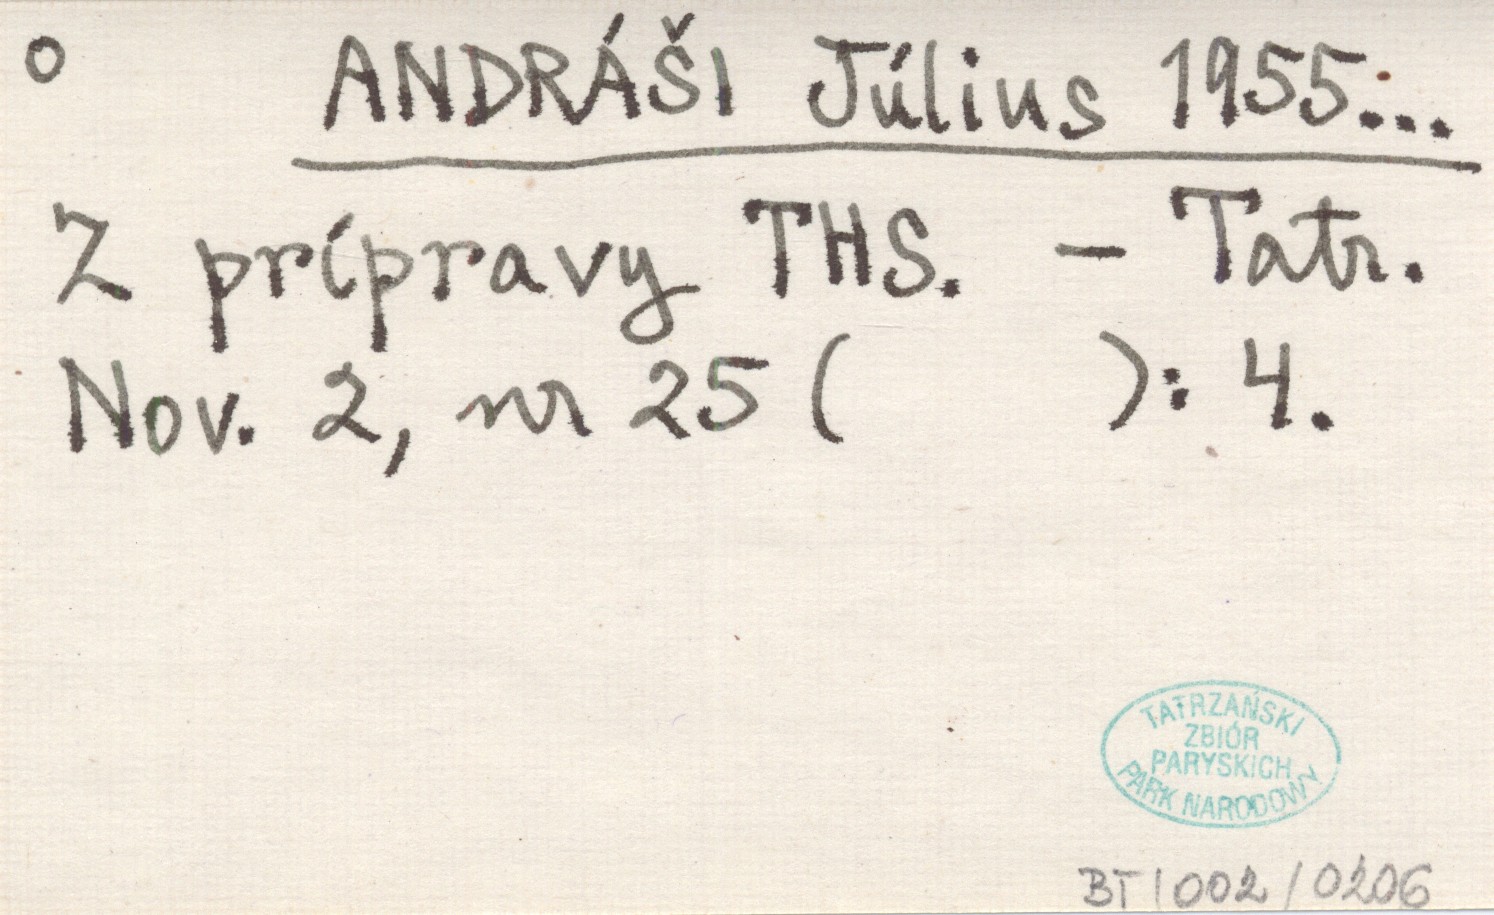 o ANDRÁŠI Július 1955...
Z prípravy THS. – Tatr.
Nov. 2, nr 25 ( ): 4.
TATRZAŃSKI
ZBIÓR
PARYSKICH
PARK NARODOWY
BT/002/0206